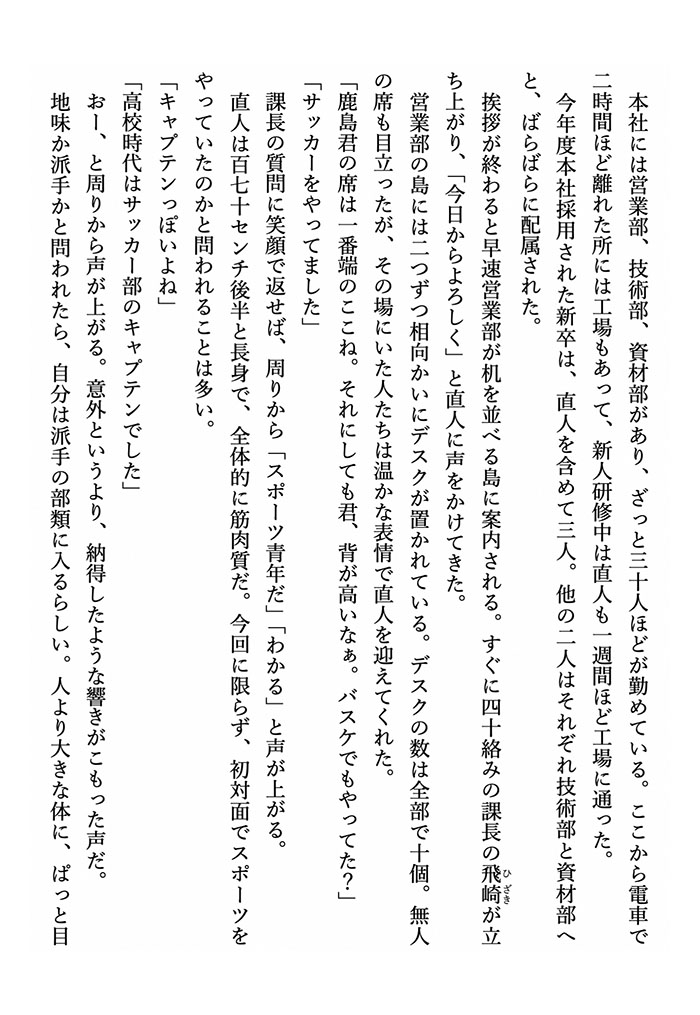 本社には営業部、技術部、資材部があり、ざっと三十人ほどが勤めている。ここから電車で
二時間ほど離れた所には工場もあって、新人研修中は直人も一週間ほど工場に通った。
今年度本社採用された新卒は、直人を含めて三人。他の二人はそれぞれ技術部と資材部へ
と、ばらばらに配属された。
挨拶が終わると早速営業部が机を並べる島に案内される。すぐに四十絡みの課長の飛崎が立
ち上がり、「今日からよろしく」と直人に声をかけてきた。
営業部の島には二つずつ相向かいにデスクが置かれている。デスクの数は全部で十個。無人
の席も目立ったが、その場にいた人たちは温かな表情で直人を迎えてくれた。
「鹿島君の席は一番端のここね。それにしても君、背が高いなぁ。バスケでもやってた？」
「サッカーをやってました」
課長の質問に笑顔で返せば、周りから「スポーツ青年だ」「わかる」と声が上がる。
直人は百七十センチ後半と長身で、全体的に筋肉質だ。今回に限らず、初対面でスポーツを
やっていたのかと問われることは多い。
「キャプテンっぽいよね」
「高校時代はサッカー部のキャプテンでした」
おー、と周りから声が上がる。意外というより、納得したような響きがこもった声だ。
地味か派手かと問われたら、自分は派手の部類に入るらしい。人より大きな体に、ぱっと目
ひざき